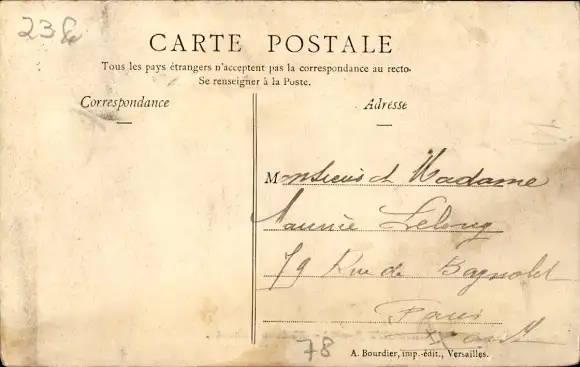 23
CARTE POSTALE
Tous les pays étrangers n'acceptent pas la correspondance au recto.
Se renseigner à la Poste.
Correspondance
Adresse
Monsieur et Madame
Maurice Lelong
79 Rue de Bagnolet
Paris
78
A. Bourdier, imp.-édit., Versailles.